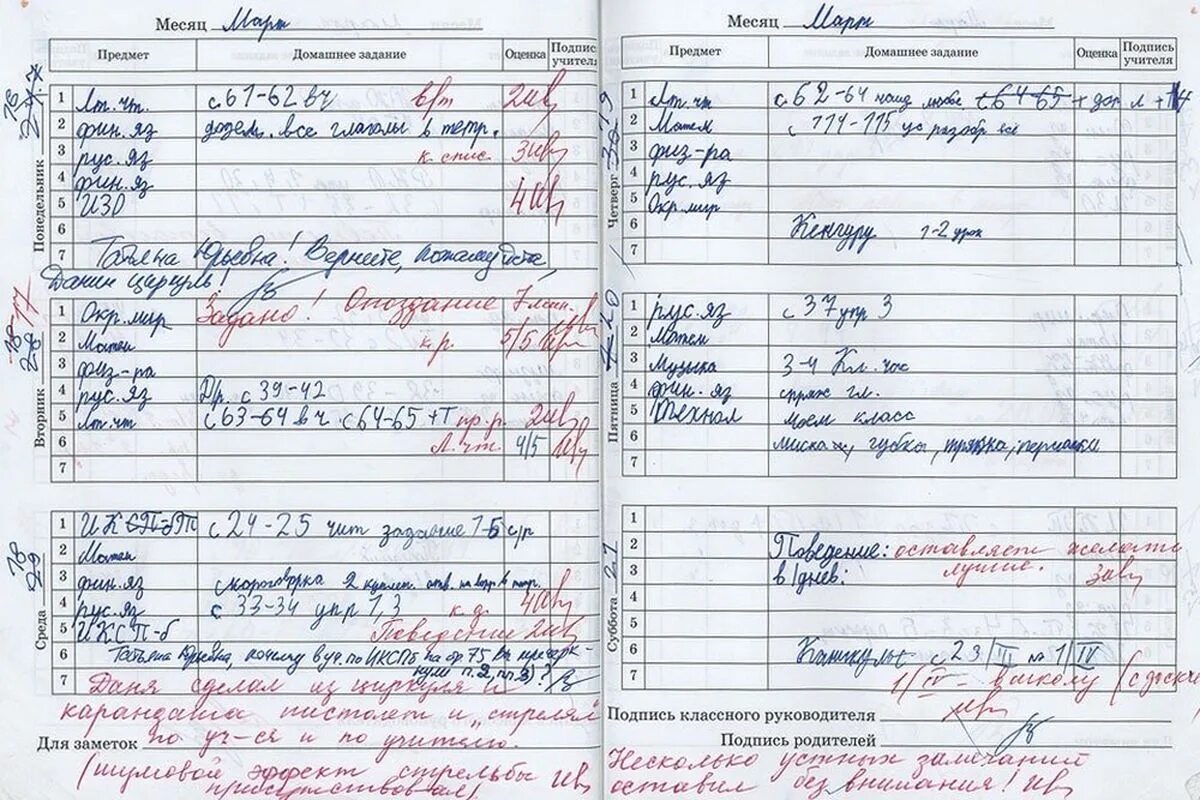 Месяц Март
Предмет Домашнее задание Оценка Подпись учителя
Понедельник
1 Лт. чт. с 61-62 вч 2
2 фин. яз додел. все глаголы в тетр.
3 рус. яз к. спис. 3
4 фин. яз
5 ИЗО 4
6
7 Татьяна Юрьевна! Верните, пожалуйста,
Данин циркуль!
Вторник 17
1 Окр. мир Задано! Опоздание 7 мин.
2 Матем к.р. 5/5
3 физ-ра
4 рус. яз Др. с 39-42
5 Лт. чт с 63-64 вч с 64-65 + Т пр. р. 2
6 Л. чт. 4/5
7
Среда 18
1 ИКСП-б с 24-25 чит задание 1-5 с/р
2 Матем
3 фин. яз скороговорка 2 куплет. отв. на вопр. в тетр.
4 рус. яз с 33-34 упр 1, 3 к. д. 4
5 ИКСП-б Поведение 2
6 Татьяна Юрьевна, почему в уч. по ИКСПб на стр. 75 Вы перечерк-
7 нули п. 2, пп. 3)?
Даня сделал из циркуля и
карандаша пистолет и "стрелял"
по уч-ся и по учителю.
Для заметок
(шумовой эффект стрельбы
присутствовал!)
Месяц Март
Предмет Домашнее задание Оценка Подпись учителя
Четверг 19
1 Лт. чт с 62-64 наиз любое с 64-65 +
2 Матем с 114-115 ус разобр всё
3 физ-ра
4 рус. яз
5 Окр. мир
6 Кенгуру 1-2 урок
7
Пятница 20
1 рус. яз с 37 упр 3
2 Матем
3 Музыка 3-4 Кл. час
4 фин. яз спряж гл.
5 Технол Моем класс
6 миска, губка, тряпка, перчатки
7
Суббота 21
1
2 Поведение: оставляет желать
3 в/днев: лучшего. 3
4
5
6 Каникулы с 23/III по 1/IV
7 1/IV - в школу
Подпись классного руководителя
Подпись родителей
Несколько устных замечаний
оставил без внимания!